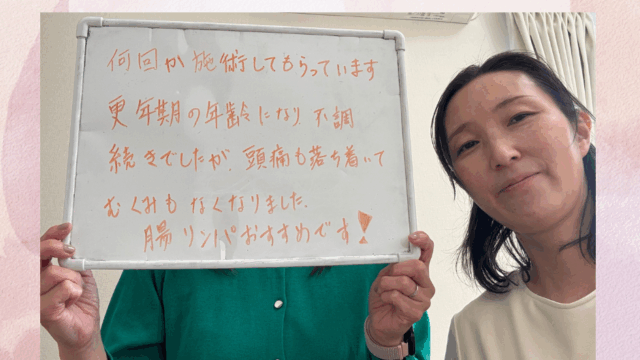 何回か施術してもらっています
更年期の年齢になり不調
続きでしたが、頭痛も落ち着いて
むくみもなくなりました、
腸リンパおすすめです!